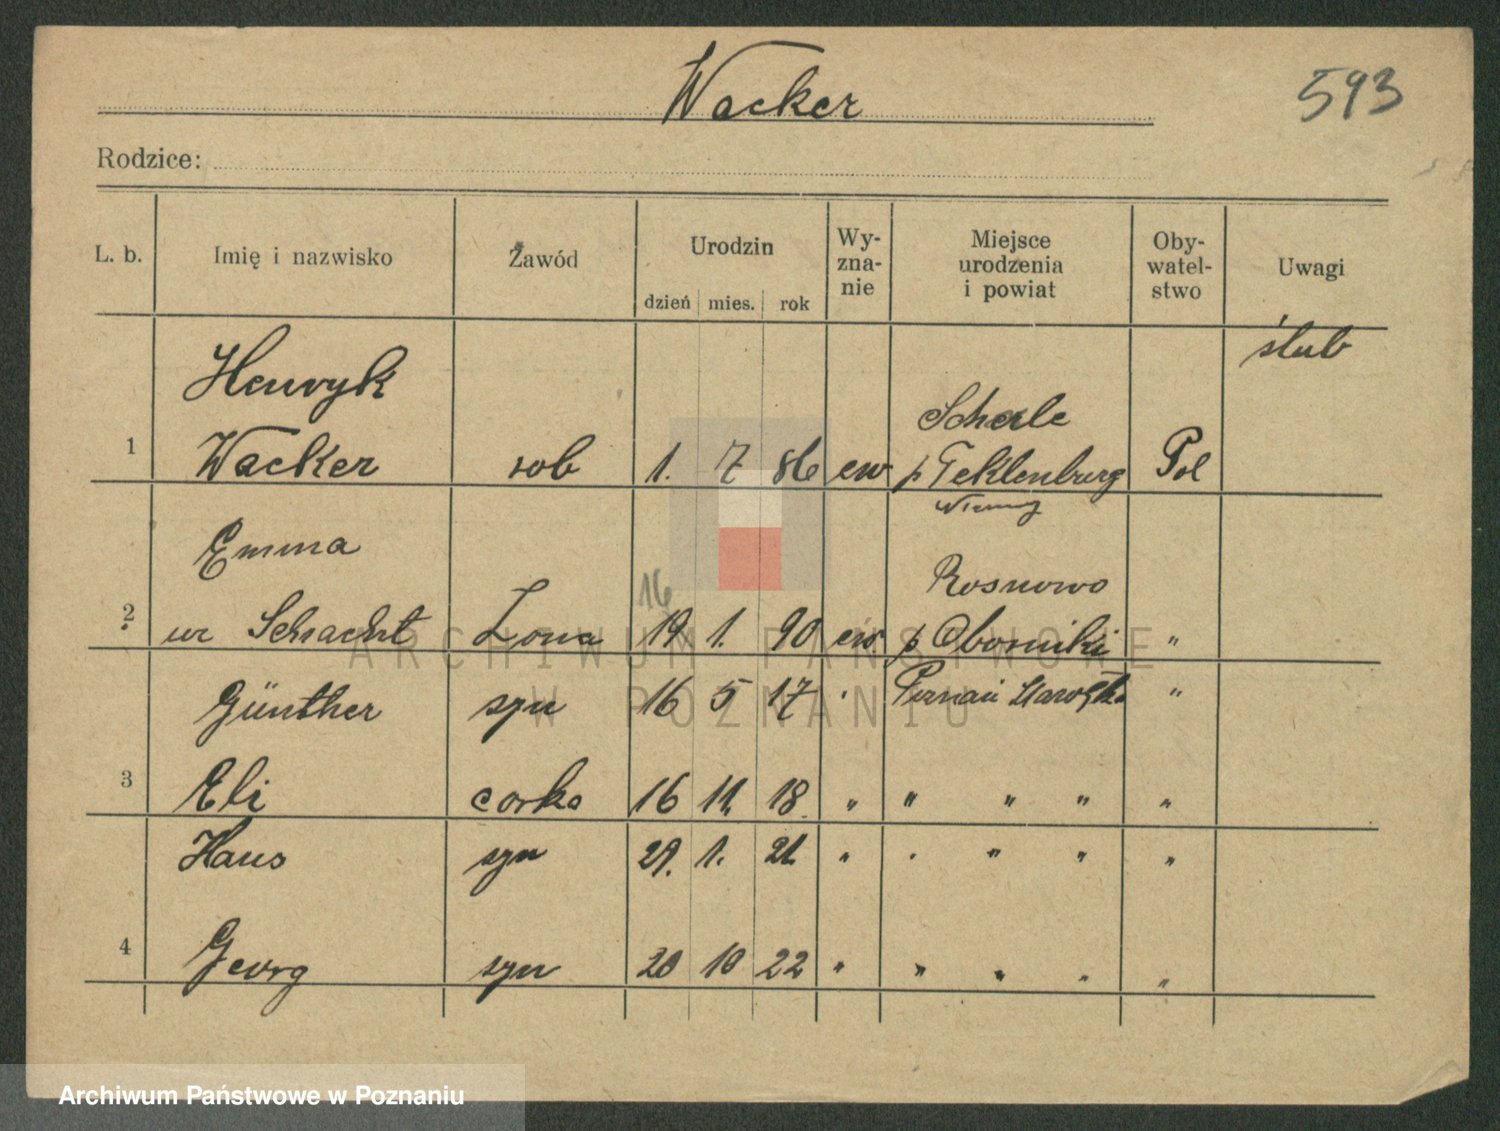 Wacker
593
Rodzice:
L. b. Imię i nazwisko Zawód Urodzin dzień mies. rok Wy-zna-nie Miejsce urodzenia i powiat Oby-watel-stwo Uwagi
ślub
Henryk
Scherle
1 Wacker rob 1. 7 86 ew p Teklenburg Pol
Niemcy
Emma
Rosnowo
16
2 ur Schracht Żona 19 1. 90 ew. p Oborniki "
Günther syn 16 5 17 " Poznań "
3 Eli corka 16 11. 18. " " " " "
Hans syn 29. 1. 21. " " " " "
4 Georg syn 20 10 22 " " " " "
ARCHIWUM PAŃSTWOWE
W POZNANIU
Archiwum Państwowe w Poznaniu